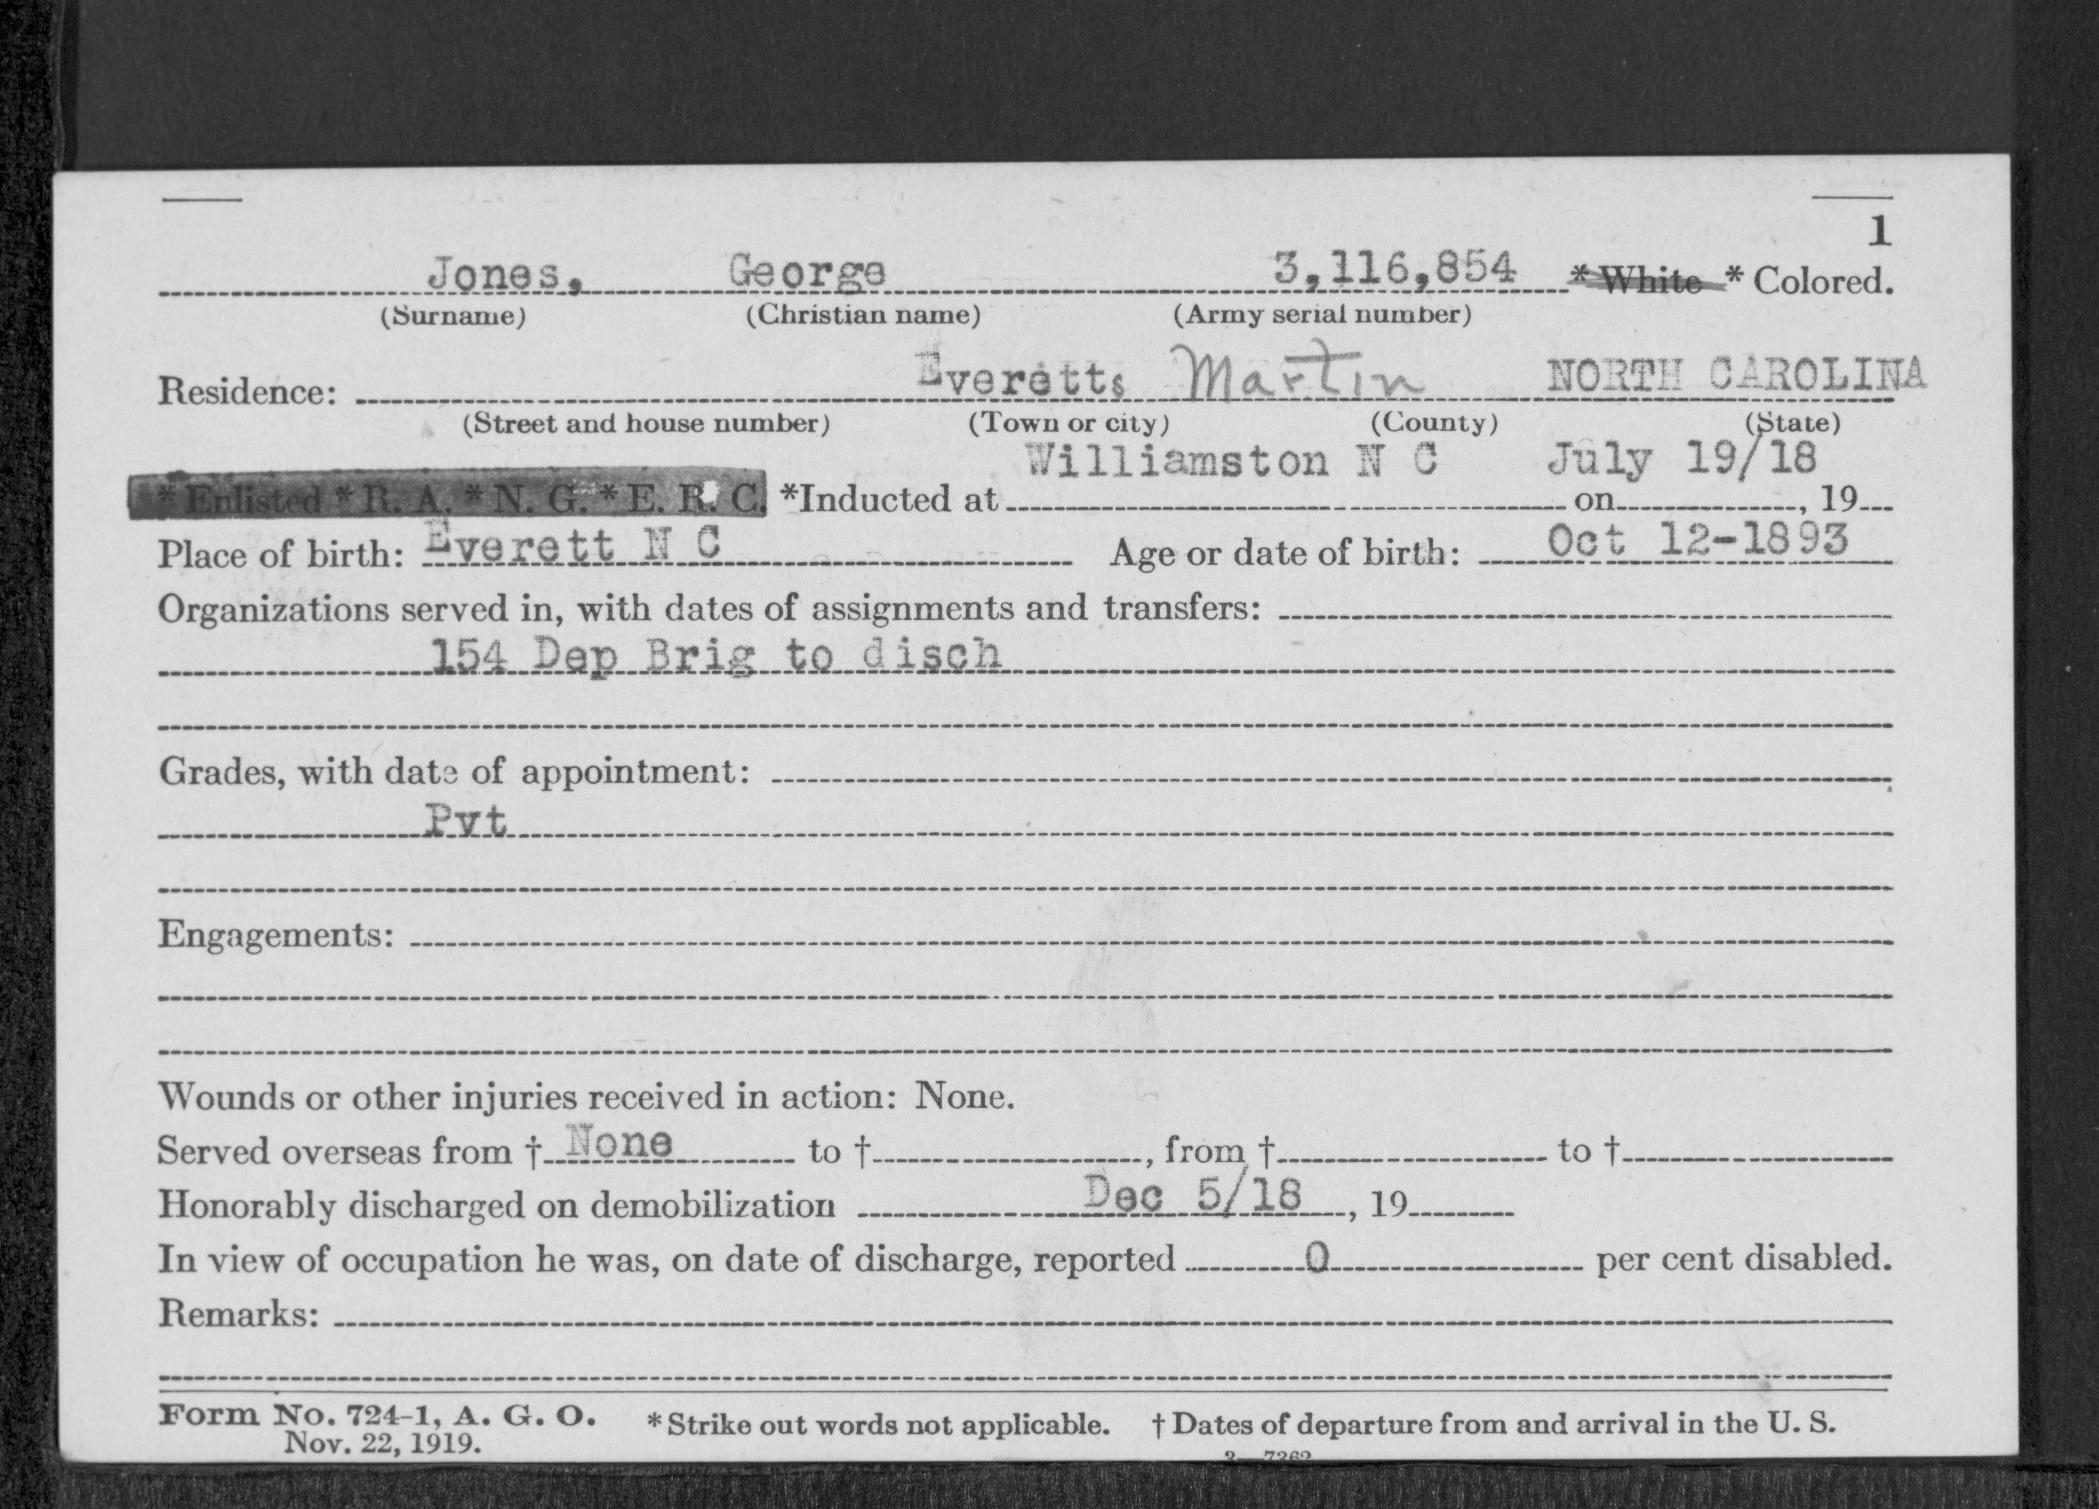 1
Jones, George 3,116,854 * White * Colored.
(Surname) (Christian name) (Army serial number)
Residence: Everetts Martin NORTH CAROLINA
(Street and house number) (Town or city) (County) (State)
Williamston N C July 19/18
* Enlisted * R. A. * N. G. * E. R. C. *Inducted at on , 19
Place of birth: Everett N C Age or date of birth: Oct 12-1893
Organizations served in, with dates of assignments and transfers:
154 Dep Brig to disch
Grades, with date of appointment:
Pvt
Engagements:
Wounds or other injuries received in action: None.
Served overseas from † None to † , from † to †
Honorably discharged on demobilization Dec 5/18 , 19
In view of occupation he was, on date of discharge, reported 0 per cent disabled.
Remarks:
Form No. 724-1, A. G. O. * Strike out words not applicable. † Dates of departure from and arrival in the U. S.
Nov. 22, 1919. 3—7262